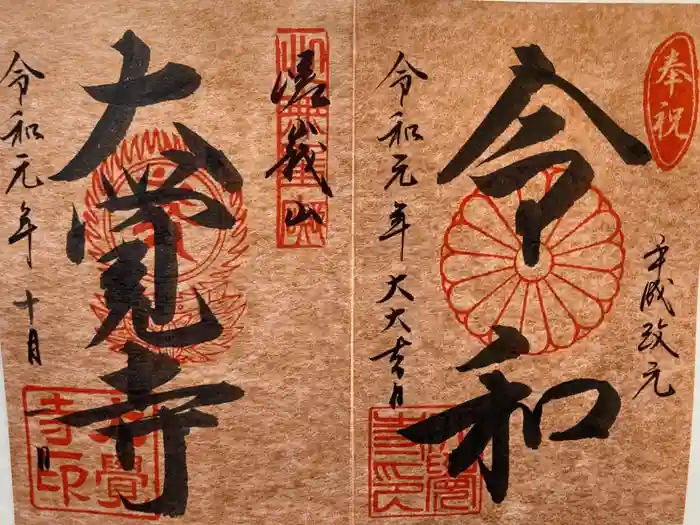 奉祝
平成改元
令和
令和元年大大吉日
嵯峨山
大覚寺
大覺寺印
令和元年十月 日